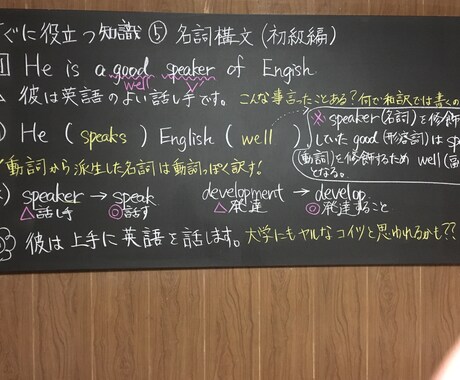 ぐに役立つ知識⑤ 名詞構文(初級編)
He is a good speaker of Engish
well V
彼は英語のよい話し手です。こんな事言ったことある?何で和訳では書くの
He ( speaks ) English ( well )
※speaker(名詞)を修飾
していた good(形容詞)は sp
(動詞)を修飾するため well(副
となる。
動詞から派生した名詞は動詞っぽく訳す!
speaker → speak development → develop
△話し手 ◎話す △発達 ◎発達すること
彼は上手に英語を話します。大学にもヤルなコイツと思われるかも??